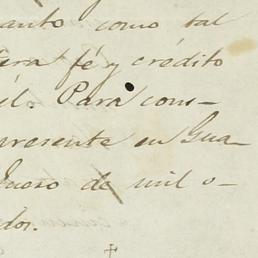 tanto como tal
era fé y crédito
él. Para cons-
presente en Gua-
Enero de mil o-
dos.